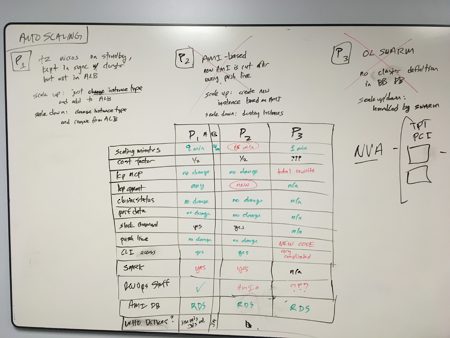 AUTO SCALING
P1 t2 micros on standby,
kept in sync w/ cluster
but not in ALB
scale up: just change instance type
and add to ALB
scale down: change instance type
and remove from ALB
P2 AMI-based
new AMI is cut after
every push live
scale up: create new
instance based on AMI
scale down: destroy instances
P3 OL SWARM
no cluster definition
in DB
scale up/down:
handled by swarm
NVA -
PCI
P1 P2 P3
scaling minutes 1 min
cost factor 1/2 1/2 ???
no change no change total rewrite
any new n/a
cluster status no change no change n/a
perf data no change no change n/a
slack command yes yes
push live no change no change NEW CODE
CLI access yes yes very complicated
yes yes n/a
DevOps Stuff ✓ AMIs ???
AMI DB RDS RDS RDS